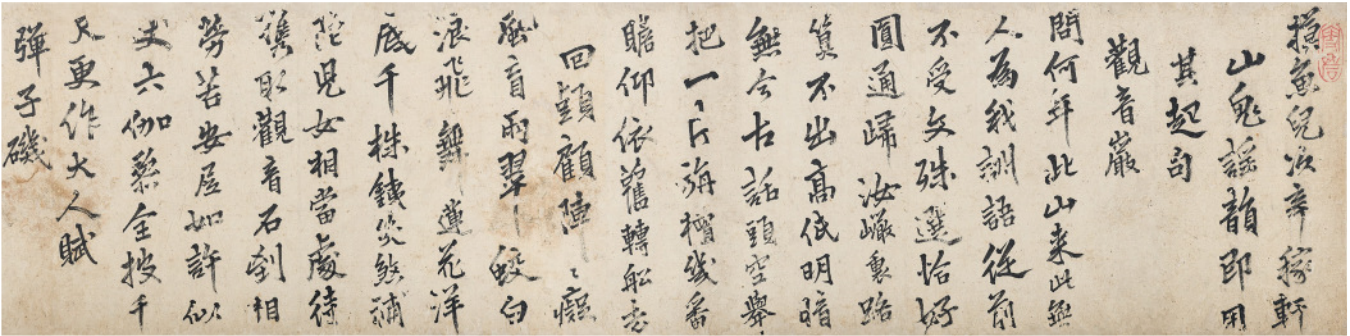 摸魚兒次辛稼軒
山鬼謠韻即用
其起句
觀音巖
問何年此山來此無
人為我訓語從前
不受文殊選恰好
圓通歸汝巇裏路
算不出高低明暗
無今古話頭空舉
把一片海檀幾番
瞻仰依舊轉船去
回頭顧陣〻癡
風盲雨翠蛟白
浪飛舞蓮花洋
底千株鐵
陀兒女相當處待
携取觀音石剎相
勞苦安居如許似
丈六伽藜全披千
尺更作大人賦
彈子磯